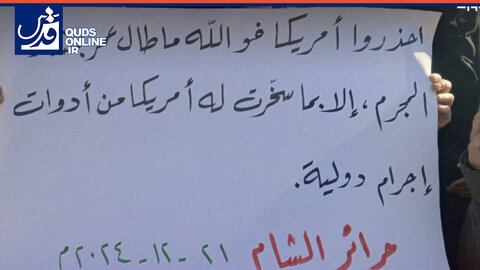 قدس
QUDS
ONLINE
.IR
احذروا أمريكا فو الله ما طال
المجرم، إلا بما سخّرت له أمريكا من أدوات
إجرام دولية.
حرائر الشام ٢١-١٢-٢٠٢٤م